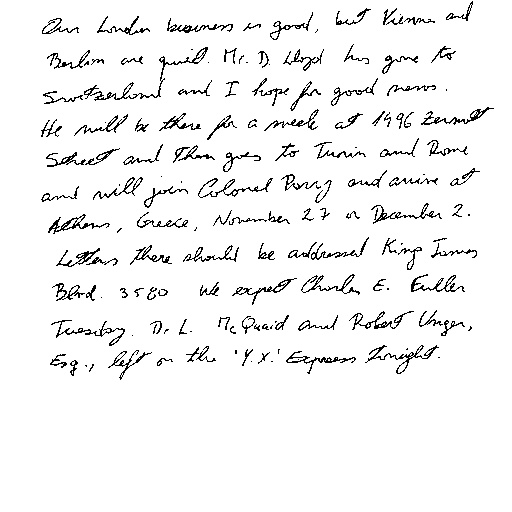 Our London business is good, but Vienna and
Berlin are quiet. Mr. D. Lloyd has gone to
Switzerland and I hope for good news.
He will be there for a week at 1496 Zermott
Street and then goes to Turin and Rome
and will join Colonel Parry and arrive at
Athens, Greece, November 27 or December 2.
Letters there should be addressed King James
Blvd. 3580 We expect Charles E. Fuller
Tuesday. Dr. L. McQuaid and Robert Unger,
Esq., left on the 'Y.X.' Express tonight.